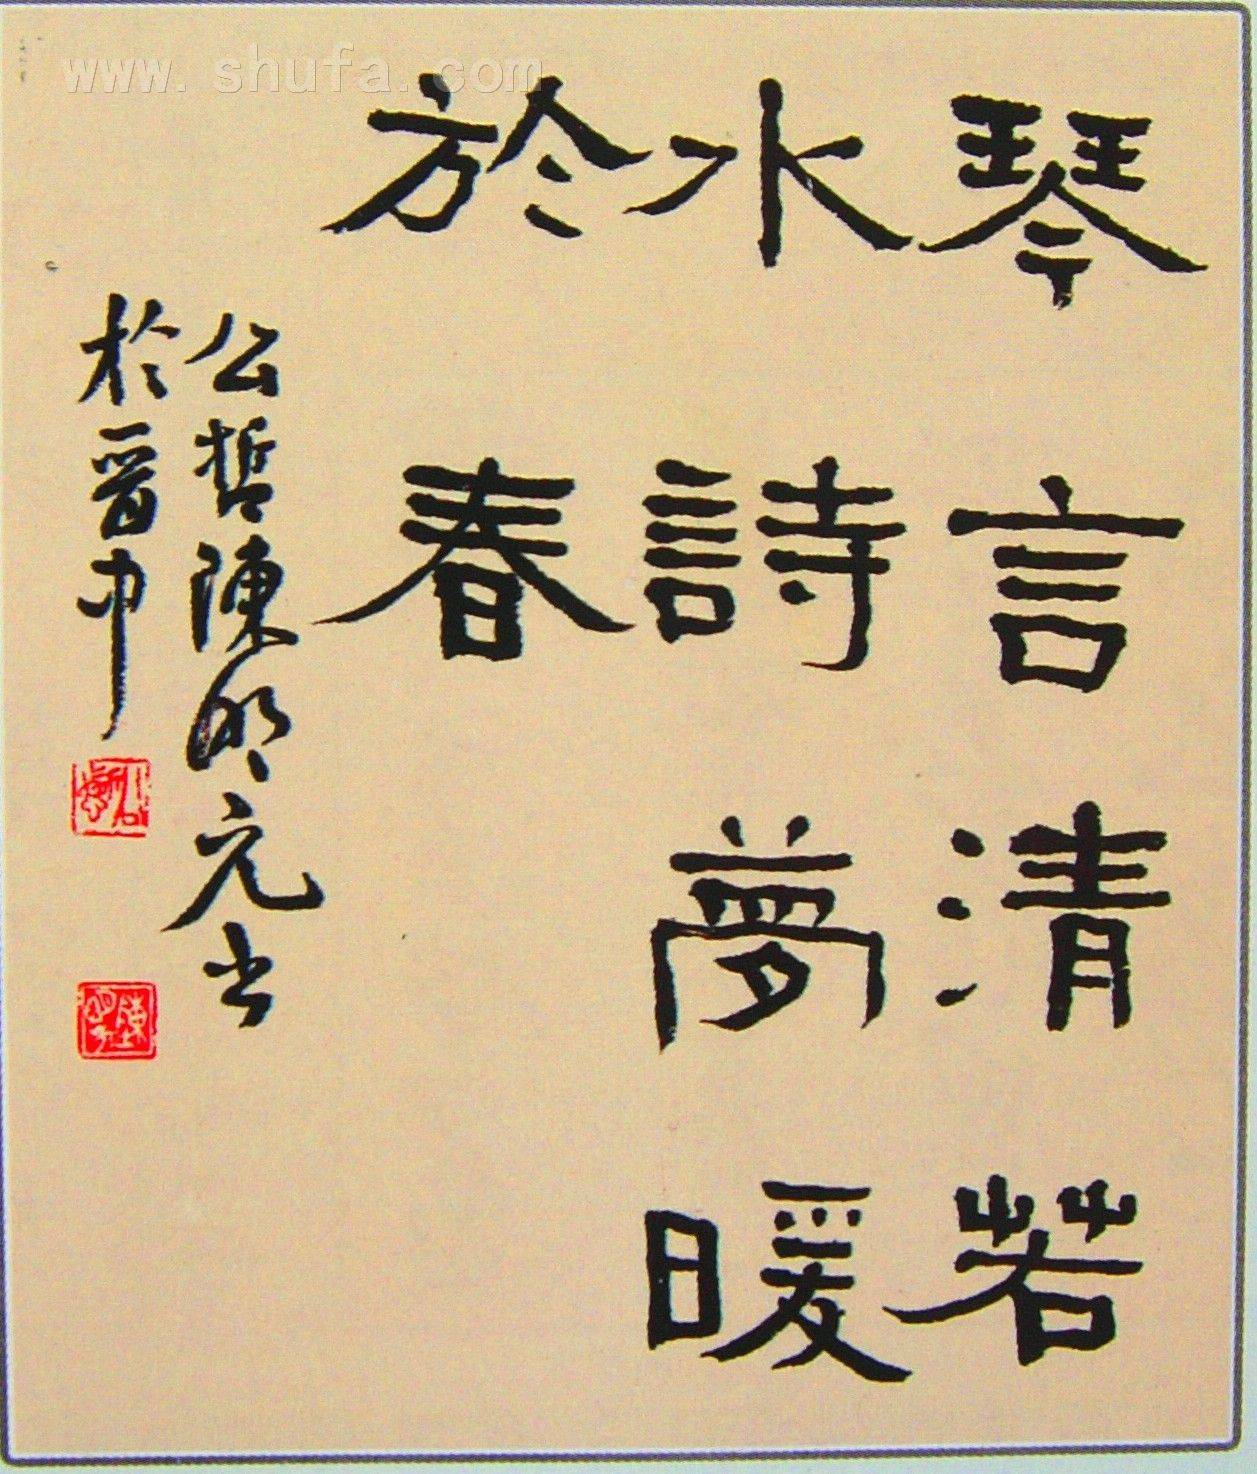 琴言清若
水詩夢暖
於春
公哲陳明元书
於晋中
www.shufa.com